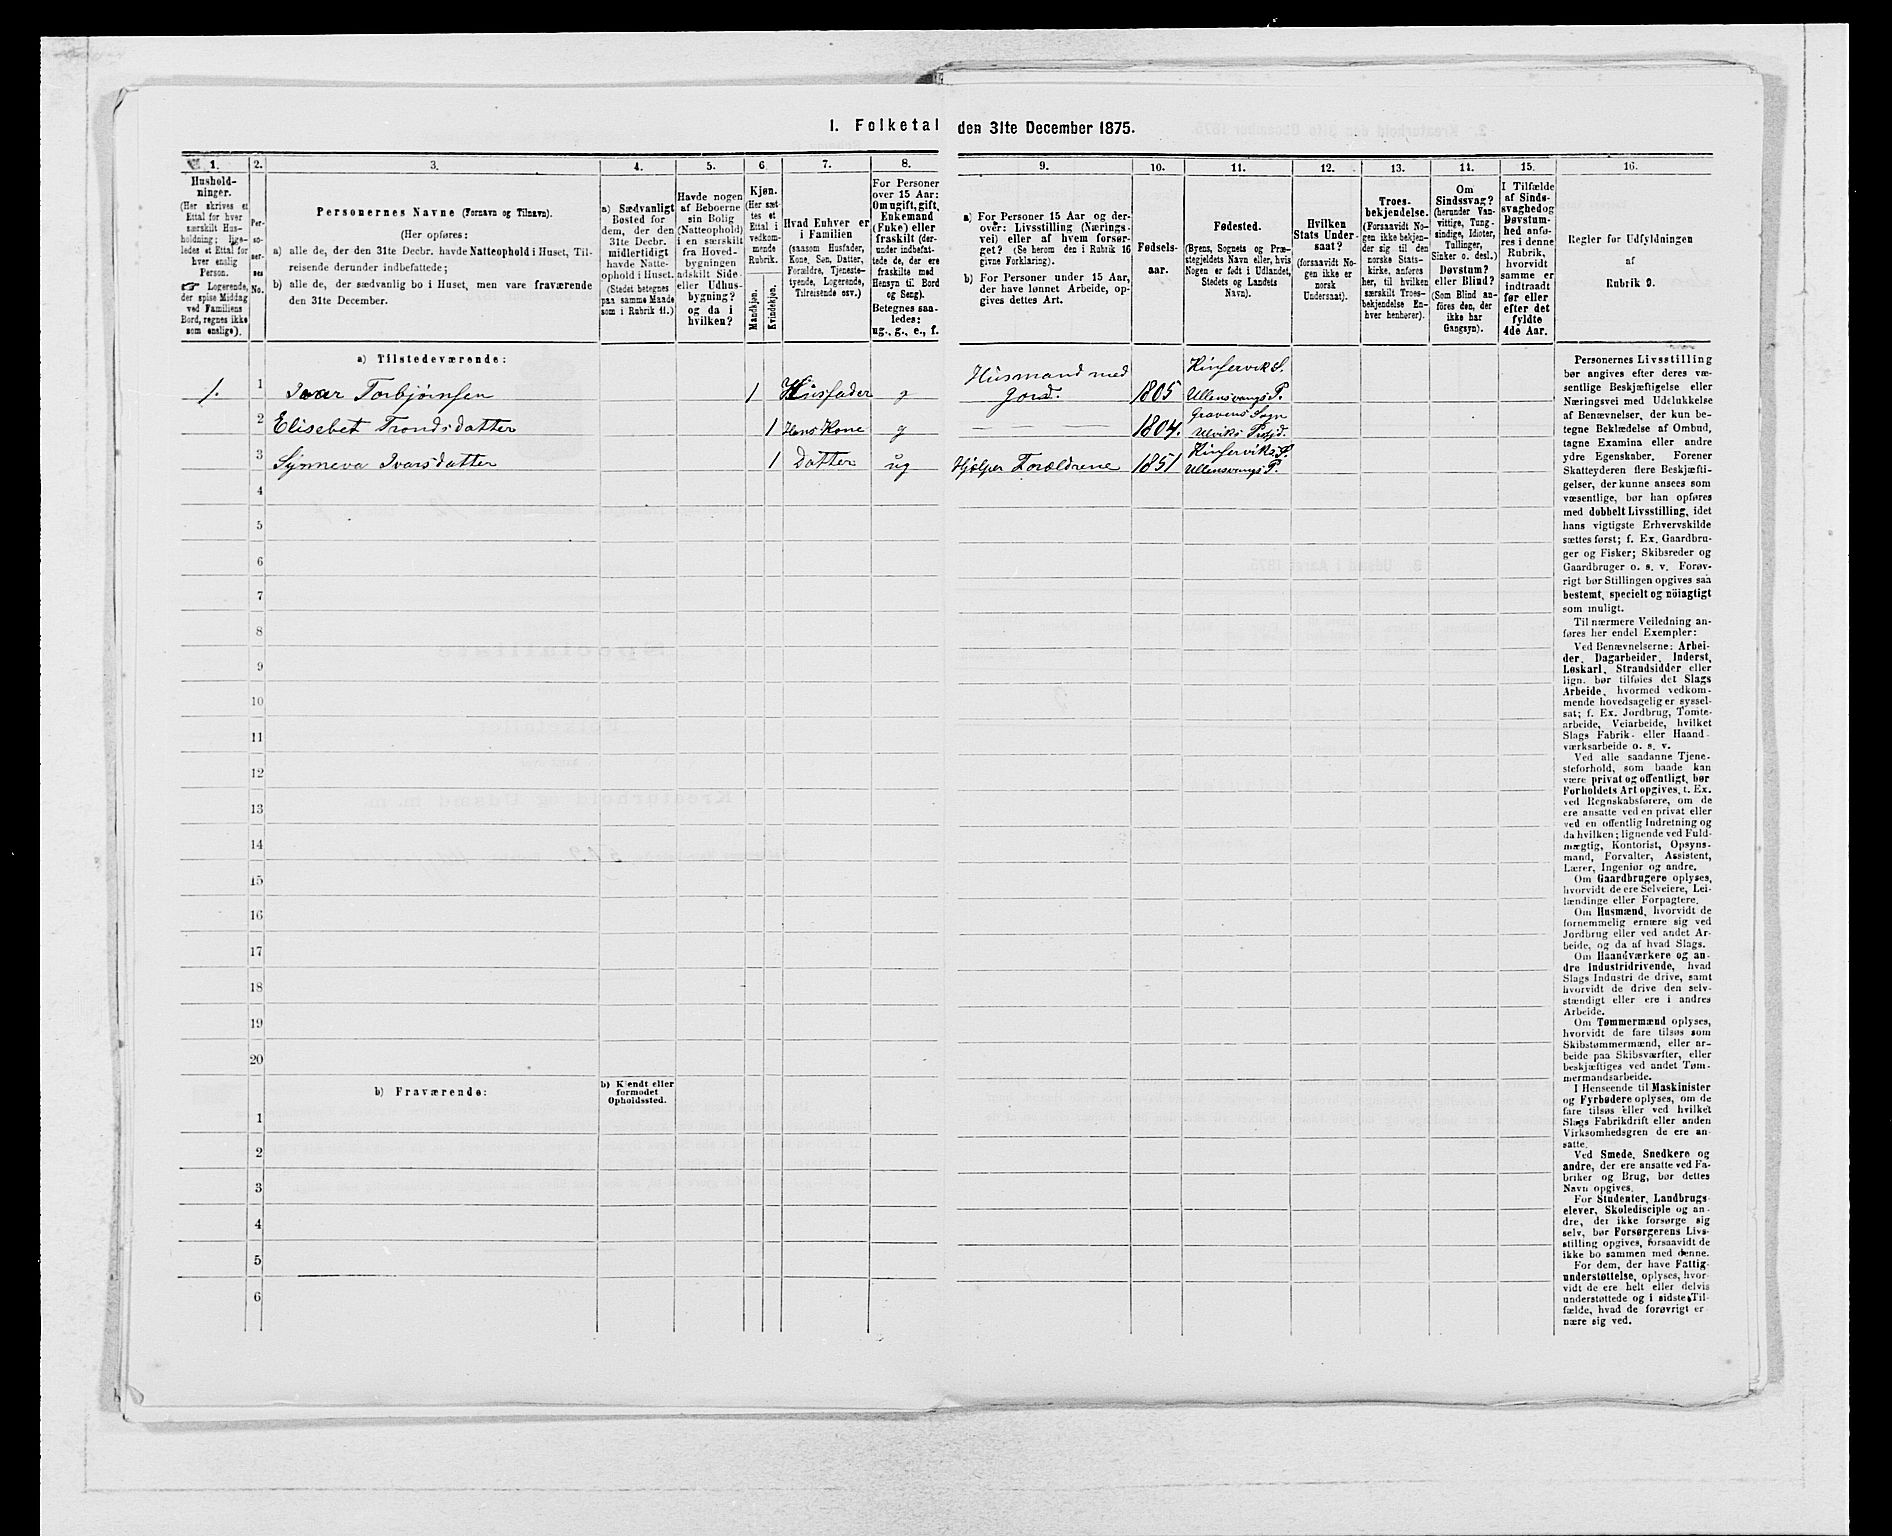 1. Folketal den 31te December 1875.
1. 2. 3. 4. 5. 6. 7. 8. 9. 10. 11. 12. 13. 14. 15. 16.
Hushold-
ninger.
(Her skrives et
Ettal for hver
særskilt Hus-
holdning; lige-
ledes et Ettal for
hver enslig
Person.
☛ Logerende,
der spise Middag
ved Familiens
Bord, regnes ikke
som enslige).
Per-
so-
ner-
nes
No.
Personernes Navne (Fornavn og Tilnavn).
(Her opføres:
a) alle de, der den 31te Decbr. havde Natteophold i Huset, Til-
reisende derunder indbefattede;
b) alle de, der sædvanlig bo i Huset, men vare fraværende
den 31te December.
a) Sædvanligt
Bosted for
dem, der den
31te Decbr.
midlertidigt
havde Natte-
ophold i Huset.
(Stedet betegnes
paa samme Maade
som i Rubrik 11.)
Havde nogen
af Beboerne
sin Bolig
(Natteophold)
i en særskilt
fra Hoved-
bygningen
adskilt Side-
eller Udhus-
bygning?
og da i
hvilken?
Kjøn.
(Her sæt-
tes et
Ettal i
vedkom-
mende
Rubrik.
Mandkjøn.
Kvindekjøn.
Hvad Enhver er
i Familien
(saasom Husfader,
Kone, Søn, Datter,
Forældre, Tjeneste-
tyende, Logerende,
Tilreisende osv.)
For Personer
over 15 Aar:
Om ugift, gift,
Enkemand
(Enke) eller
fraskilt (der-
under indbefat-
tede de, der ere
fraskilte med
Hensyn til Bord
og Seng).
Betegnes saa-
ledes:
ug., g., e., f.
a) For Personer 15 Aar og der-
over: Livsstilling (Nærings-
vei) eller af hvem forsør-
get? (Se herom den i Rubrik 16
givne Forklaring).
b) For Personer under 15 Aar,
der have lønnet Arbeide, op-
gives dettes Art.
Fødsels-
aar.
Fødested.
(Byens, Sognets og Præ-
stegjeldets Navn eller, hvis
Nogen er født i Udlandet,
Stedets og Landets
Navn).
Hvilken
Stats Under-
saat?
(forsaavidt No-
gen ikke er
norsk
Undersaat).
Troes-
bekjendelse.
(Forsaavidt No-
gen ikke bekjen-
der sig til den
norske Stats-
kirke, anføres
her, til hvilken
særskilt Troes-
bekjendelse En-
hver henhører).
Om
Sindssvag?
(herunder Van-
vittige, Tung-
sindige, Idioter,
Tullinger,
Sinker o. desl.)
Døvstum?
eller Blind?
(Som Blind an-
føres den, der
ikke har
Gangsyn).
I Tilfælde
af Sinds-
svaghed og
Døvstum-
hed anfø-
res i denne
Rubrik,
hvorvidt
samme er
indtraadt
før eller
efter det
fyldte
4de Aar.
Regler for Udfyldningen
af
Rubrik 9.
a) Tilstedeværende:
1. 1 Ivar Torbjørnsen 1 Husfader g Husmand med Jord. 1805 Kinservik S. Ullensvangs P.
2 Elisebet Trondsdatter 1 Hans Kone g — — — 1804. Gravens Sogn Ulviks Præjd.
3 Synneva Ivarsdatter 1 Datter ug Hjælper Forældrene 1851 Kinserviks S. Ullensvangs P.
4
5
6
7
8
9
10
11
12
13
14
15
16
17
18
19
20
b) Fraværende:
b) Kjendt eller
formodet
Opholdssted.
1
2
3
4
5
6
Personernes Livsstilling
bør angives efter deres væ-
sentlige Beskjæftigelse eller
Næringsvei med Udelukkelse
af Benævnelser, der kun be-
tegne Beklædelse af Ombud,
tagne Examina eller andre
ydre Egenskaber. Forener
Skatteyderen flere Beskjæfti-
gelser, der kunne ansees som
væsentlige, bør han opføres
med dobbelt Livsstilling, idet
hans vigtigste Erhvervskilde
sættes først; f. Ex. Gaardbru-
ger og Fisker; Skibsreder og
Gaardbruger o. s. v. Forøv-
rigt bør Stillingen opgives saa
bestemt, specielt og nöiagtigt
som muligt.
Til nærmere Veiledning an-
føres her endel Exempler:
Ved Benævnelserne: Arbei-
der, Dagarbeider, Inderst,
Løskarl, Strandsidder eller
lign. bør tilføies det Slags
Arbeide, hvormed vedkom-
mende hovedsagelig er syssel-
sat; f. Ex. Jordbrug, Tomte-
arbeide, Veiarbeide, hvilket
Slags Fabrik- eller Haand-
værksarbeide o. s. v.
Ved alle saadanne Tjene-
steforhold, som baade kan
være privat og offentligt, bør
Forholdets Art opgives, f. Ex.
ved Regnskabsførere, om de
ere ansatte ved en privat eller
ved en offentlig Indretning og
da hvilken; lignende ved Fuld-
mægtig, Kontorist, Opsyns-
mand, Forvalter, Assistent,
Lærer, Ingeniør og andre.
Om Gaardbrugere oplyses,
hvorvidt de ere Selveiere, Lei-
lændinge eller Forpagtere.
Om Husmænd, hvorvidt de
fornemmelig ernære sig ved
Jordbrug eller ved andet Ar-
beide, og da af hvad Slags.
Om Haandværkere og an-
dre Industridrivende, hvad
Slags Industri de drive, samt
hvorvidt de drive den selv-
stændigt eller ere i andres
Arbeide.
Om Tømmermænd oplyses,
hvorvidt de fare tilsøs som
Skibstømmermænd, eller ar-
beide paa Skibsværfter, eller
beskjæftiges ved andet Tøm-
mermandsarbeide.
I Henseende til Maskinister
og Fyrbødere oplyses, om de
fare tilsøs eller ved hvilket
Slags Fabrikdrift eller anden
Virksomhedsgren de ere an-
satte.
Ved Smede, Snedkere og
andre, der ere ansatte ved Fa-
briker og Brug, bør dettes
Navn opgives.
For Studenter, Landbrugs-
elever, Skoledisciple og an-
dre, der ikke forsørge sig
selv, bør Forsørgerens Livs-
stilling opgives, forsaavidt de
ikke bo sammen med denne.
For dem, der have Fattig-
understøttelse, oplyses, hvor-
vidt de ere helt eller delvis
understøttede og i sidste Til-
fælde, hvad de forøvrigt er-
nære sig ved.